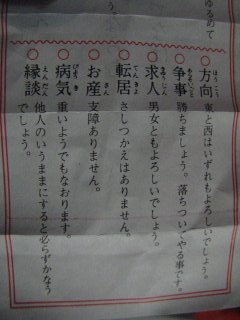 ゆるがて
○方向 東と西はいずれもよろしいでしょう。
○争事 勝ちましょう。落ちついてやる事です。
○求人 男女ともよろしいでしょう。
○転居 さしつかえはありません。
○お産 支障ありません。
○病気 重いようでもなおります。
○縁談 他人のいうままにすると必らずかなう
でしょう。